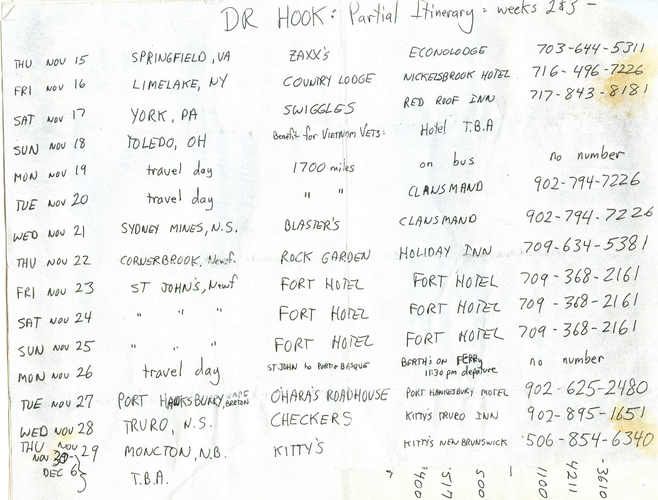 DR HOOK: Partial Itinerary: weeks 2&3 -
THU NOV 15 SPRINGFIELD, VA ZAXX's ECONOLODGE 703-644-5311
FRI NOV 16 LIMELAKE, NY COUNTRY LODGE NICKELSBROOK HOTEL 716-496-7226
SAT NOV 17 YORK, PA SWIGGLES RED ROOF INN 717-843-8181
SUN NOV 18 TOLEDO, OH Benefit for VIETNAM VETS: Hotel T.B.A
MON NOV 19 travel day 1700 miles on bus no number
TUE NOV 20 travel day " " CLANSMAND 902-794-7226
WED NOV 21 SYDNEY MINES, N.S. BLASTER'S CLANSMAND 902-794-7226
THU NOV 22 CORNERBROOK, Newf. ROCK GARDEN HOLIDAY INN 709-634-5381
FRI NOV 23 ST JOHN's, Newf FORT HOTEL FORT HOTEL 709-368-2161
SAT NOV 24 " " FORT HOTEL FORT HOTEL 709-368-2161
SUN NOV 25 " " FORT HOTEL FORT HOTEL 709-368-2161
MON NOV 26 travel day ST JOHN to PORT BASQUE BERTH's ON FERRY 11:30 pm departure no number
TUE NOV 27 PORT HAWKSBURRY, CAPE BRETON O'HARA'S ROADHOUSE PORT HAWKESBURY MOTEL 902-625-2480
WED NOV 28 TRURO, N.S. CHECKERS KITTY'S TRURO INN 902-895-1651
THU NOV 29 MONCTON, N.B. KITTY'S KITTY'S NEW BRUNSWICK 506-854-6340
NOV 30- DEC 6 } T.B.A.
400 517 500 - 1100 4211 -3610